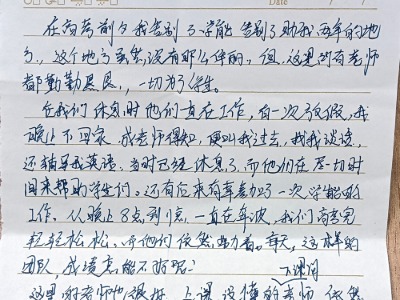 在高考前夕我告别了学能 告别了助我两年的地
了，这个地了虽然没有那么华丽。但，这里所有老师
都勤勤恳恳，一切为了学生。
在我们休息时他们一直在工作，有一次放假，我
晚上不回家 成老师得知，便叫我过去，找我谈谈，
还辅导我英语，当时已经休息了而他们在尽一切时
间来帮助学生们。还有后来有幸参加了一次学能的
工作，从晚上8点到1点，一直在奔波，我们高考完
轻轻松松，而他们依然努力着。有天，这样的
团队，成绩怎能不好呢？
下课问
这里的老师也很好，上课没懂的老师依然